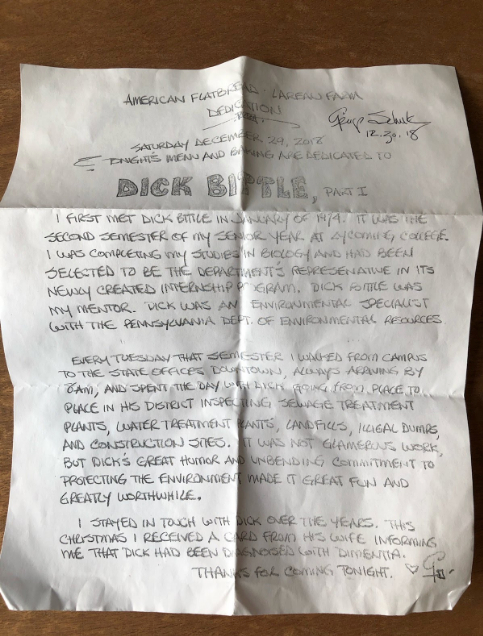 AMERICAN FLATBREAD LAREAU FARM
DEDICATION
George Schenk
12.30.18
SATURDAY DECEMBER 29, 2018
TONIGHT'S MENU AND BAKING ARE DEDICATED TO
DICK BITTLE, PART I
I FIRST MET DICK BITTLE IN JANUARY OF 1974. IT WAS THE
SECOND SEMESTER OF MY SENIOR YEAR AT LYCOMING COLLEGE.
I WAS COMPLETING MY STUDIES IN BIOLOGY AND HAD BEEN
SELECTED TO BE THE DEPARTMENT'S REPRESENATIVE IN ITS
NEWLY CREATED INTERNSHIP PROGRAM. DICK BITTLE WAS
MY MENTOR. DICK WAS AN ENVIRONMENTAL SPECIALIST
WITH THE PENNSYLVANIA DEPT. OF ENVIRONMENTAL RESOURCES.
EVERY TUESDAY THAT SEMESTER I WALKED FROM CAMPUS
TO THE STATE OFFICES DOWNTOWN, ALWAYS ARRIVING BY
8AM, AND SPENT THE DAY WITH DICK GOING FROM PLACE TO
PLACE IN HIS DISTRICT INSPECTING SEWAGE TREATMENT
PLANTS, WATER TREATMENT PLANTS, LANDFILLS, ILLIGAL DUMPS,
AND CONSTRUCTION SITES. IT WAS NOT GLAMEROUS WORK,
BUT DICK'S GREAT HUMOR AND UNBENDING COMMITMENT TO
PROTECTING THE ENVIRONMENT MADE IT GREAT FUN AND
GREATLY WORTHWHILE.
I STAYED IN TOUCH WITH DICK OVER THE YEARS. THIS
CHRISTMAS I RECEIVED A CARD FROM HIS WIFE INFORMING
ME THAT DICK HAD BEEN DIAGNOSED WITH DIMENTIA.
THANKS FOR COMING TONIGHT. ♡ G